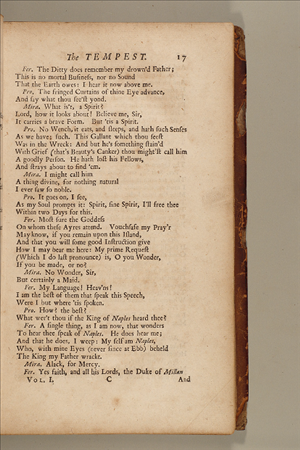 The TEMPEST. 17
Fer. The Ditty does remember my drown'd Father;
This is no mortal Business, nor no Sound
That the Earth owes: I hear it now above me.
Pro. The fringed Curtains of thine Eye advance,
And say what thou see'st yond.
Mira. What is't, a Spirit?
Lord, how it looks about! Believe me, Sir,
It carries a brave Form. But 'tis a Spirit.
Pro. No Wench, it eats, and sleeps, and hath such Senses
As we have; such. This Gallant which thou seest
Was in the Wreck: And but he's something stain'd
With Grief (that's Beauty's Canker) thou might'st call him
A goodly Person. He hath lost his Fellows,
And strays about to find 'em.
Mira. I might call him
A thing divine, for nothing natural
I ever saw so noble.
Pro. It goes on, I see,
As my Soul prompts it: Spirit, fine Spirit, I'll free thee
Within two Days for this.
Fer. Most sure the Goddess
On whom these Ayres attend. Vouchsafe my Pray'r
May know, if you remain upon this Island,
And that you will some good Instruction give
How I may bear me here: My prime Request
(Which I do last pronounce) is, O you Wonder,
If you be made, or no?
Mira. No Wonder, Sir,
But certainly a Maid.
Fer. My Language! Heav'ns!
I am the best of them that speak this Speech,
Were I but where 'tis spoken.
Pro. How? the best?
What wer't thou if the King of Naples heard thee?
Fer. A single thing, as I am now, that wonders
To hear thee speak of Naples. He does hear me;
And that he does, I weep: My self am Naples,
Who, with mine Eyes (never since at Ebb) beheld
The King my Father wrackt.
Mira. Alack, for Mercy.
Fer. Yes faith, and all his Lords, the Duke of Millan
VOL. I. C And